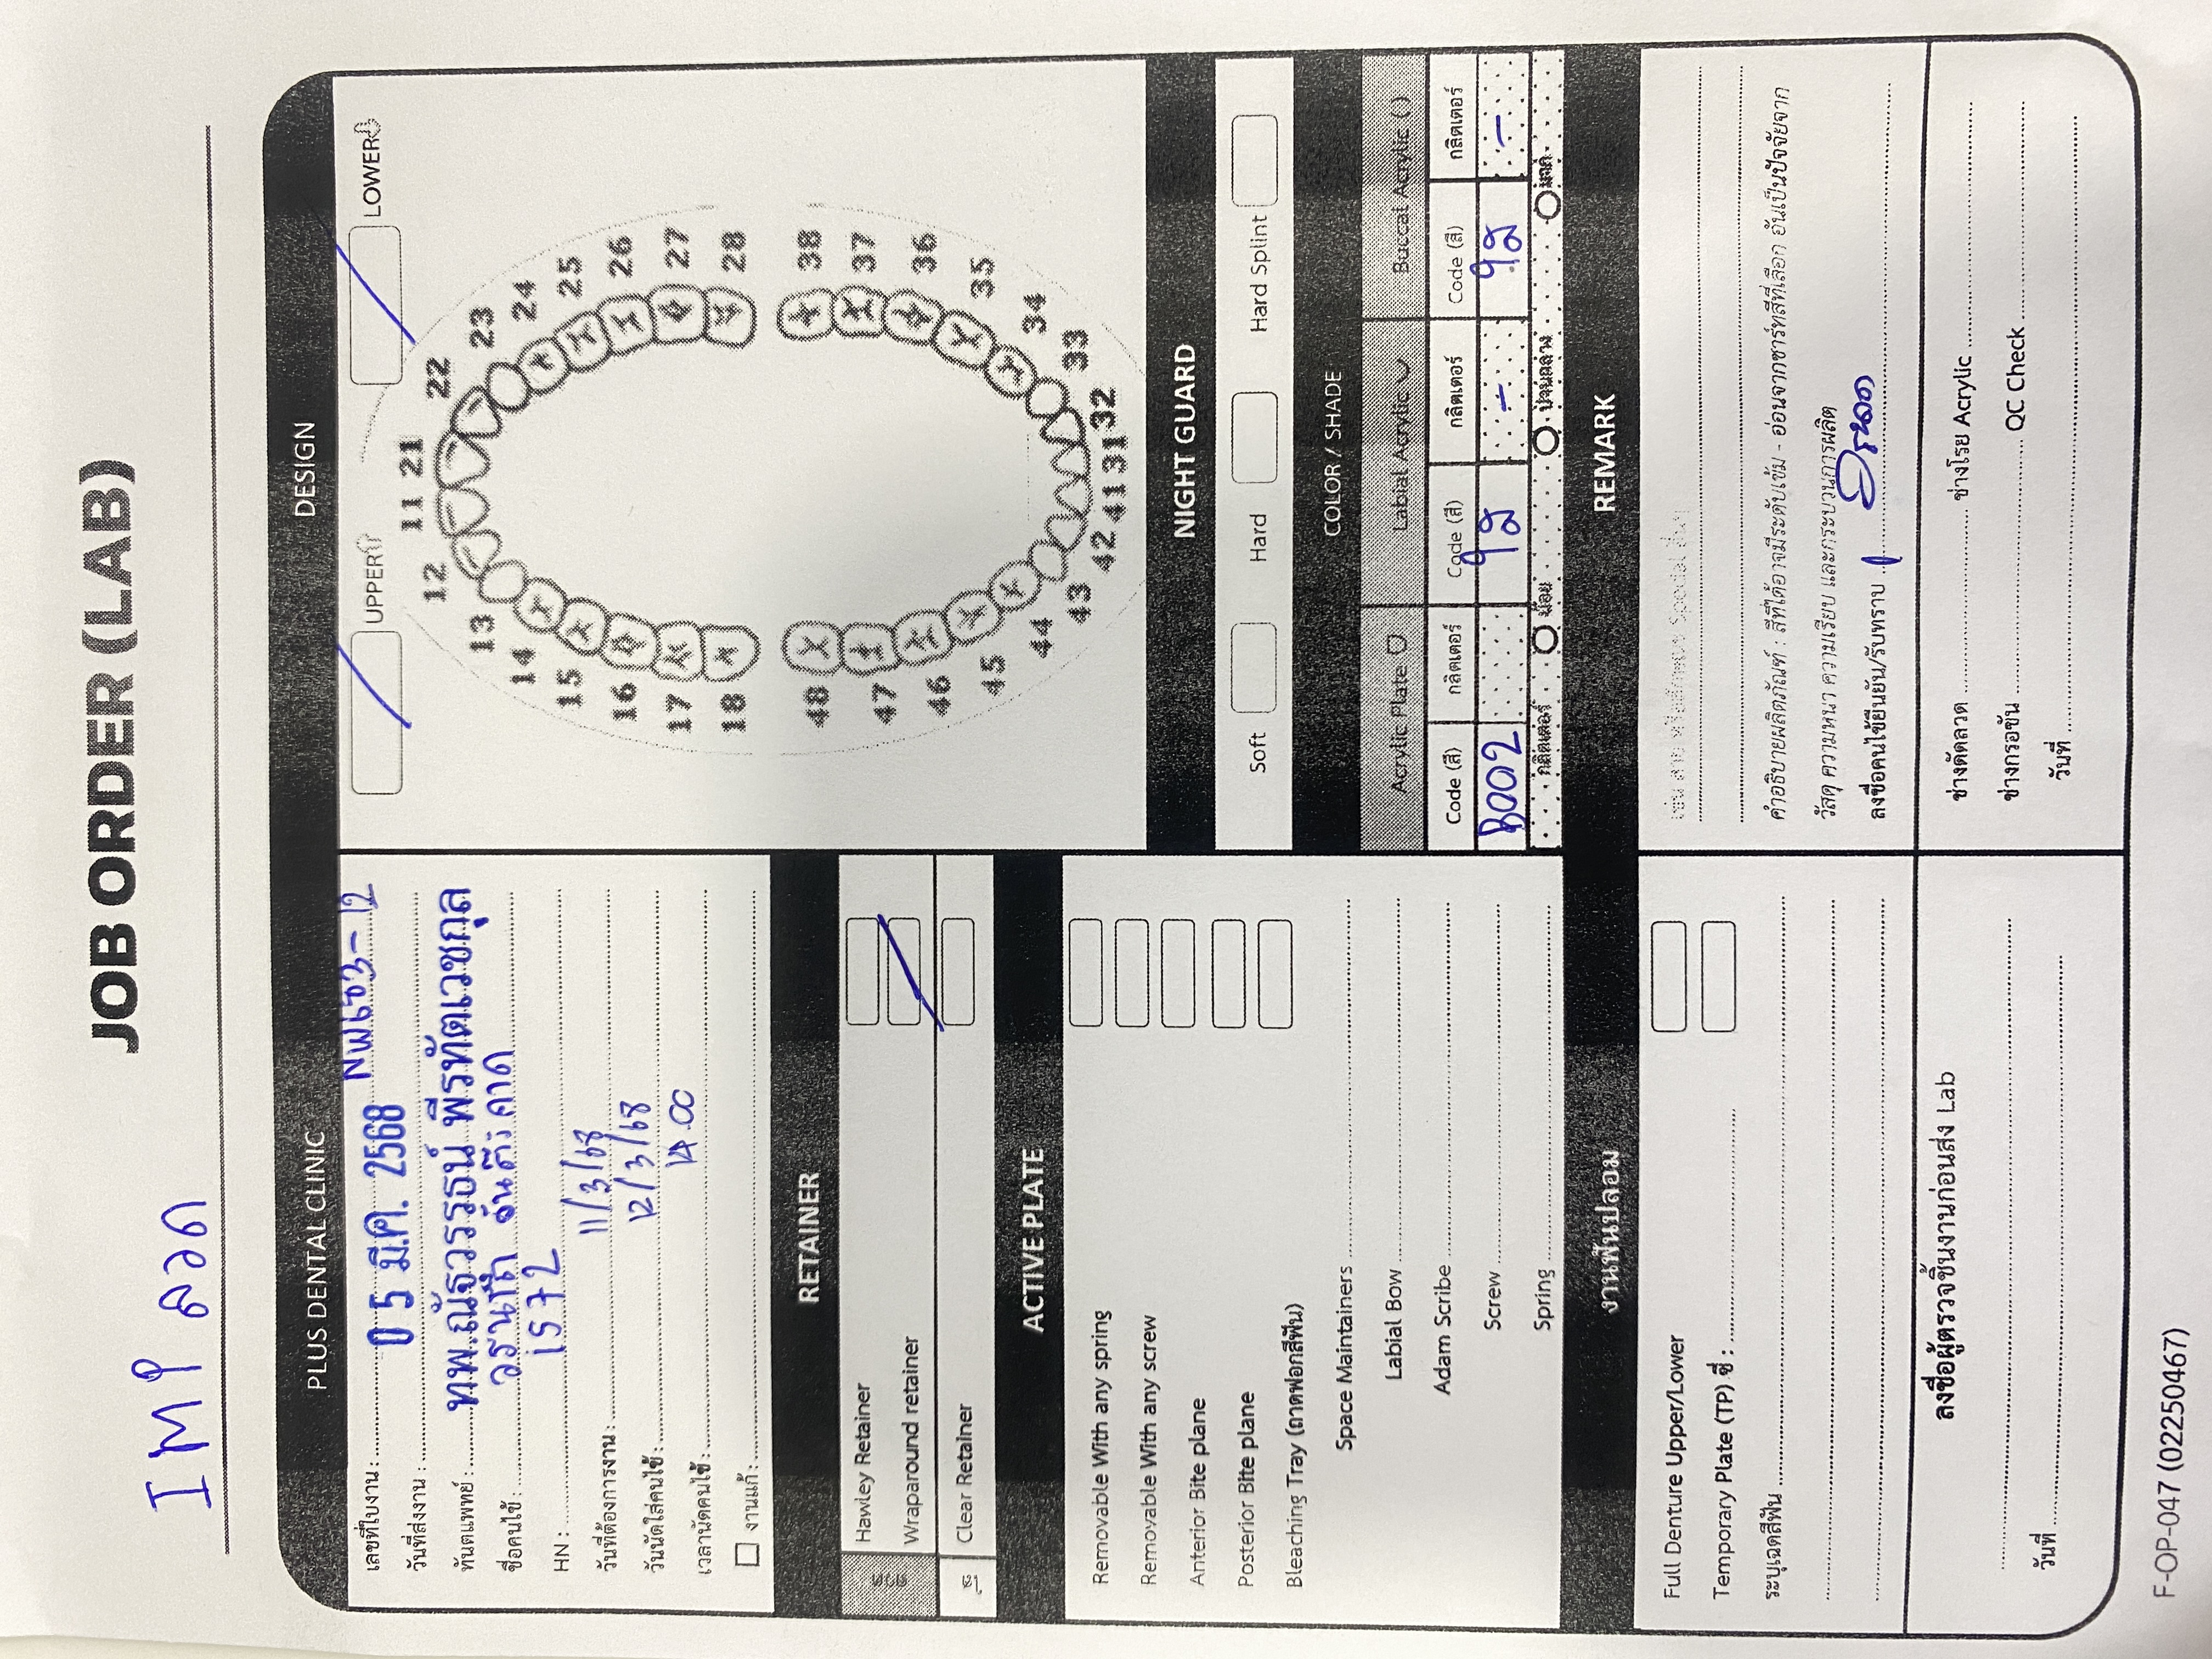 JOB ORDER (LAB)
IMP ลวด
PLUS DENTAL CLINIC
เลขที่ใบงาน : NW683-12
วันที่ส่งงาน : 05 มี.ค. 2568
ทันตแพทย์ : ทพ.ณัฐวรรธน์ พีรทัตเวชกุล
ชื่อคนไข้ :
HN : 1572
วันที่ต้องการงาน : 11/3/68
วันนัดใส่คนไข้ : 12/3/68
เวลานัดคนไข้ : 14.00
งานแก้ :
RETAINER
ลวด
Hawley Retainer
Wraparound retainer
ใส
Clear Retainer
ACTIVE PLATE
Removable With any spring
Removable With any screw
Anterior Bite plane
Posterior Bite plane
Bleaching Tray (ถาดฟอกสีฟัน)
Space Maintainers
Labial Bow
Adam Scribe
Screw
Spring
งานฟันปลอม
Full Denture Upper/Lower
Temporary Plate (TP) ซี่ :
ระบุเฉดสีฟัน
ลงชื่อผู้ตรวจชิ้นงานก่อนส่ง Lab
วันที่
DESIGN
UPPER LOWER
11 21
12 22
13 23
14 24
15 25
16 26
17 27
18 28
48 38
47 37
46 36
45 35
44 34
43 33
42 41 31 32
NIGHT GUARD
Soft Hard Hard Splint
COLOR / SHADE
Acrylic Plate Labial Acrylic Buccal Acrylic ( )
Code (สี) กลิตเตอร์ Code (สี) กลิตเตอร์ Code (สี) กลิตเตอร์
B002 ใส - ใส -
กลิตเตอร์ น้อย ปานกลาง มาก
REMARK
เช่น ลาย หรือลักษณะ Special อื่นๆ
คำอธิบายผลิตภัณฑ์ : สีที่ได้อาจมีระดับเข้ม - อ่อนจากชาร์ทสีที่เลือก อันเป็นปัจจัยจาก
วัสดุ ความหนา ความเรียบ และกระบวนการผลิต
ลงชื่อคนไข้ยืนยัน/รับทราบ
ช่างดัดลวด ช่างโรย Acrylic
ช่างกรอขัน QC Check
วันที่
F-OP-047 (02250467)